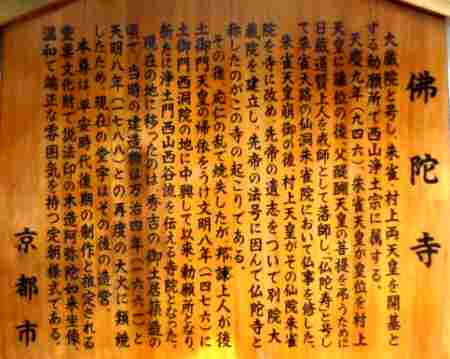 佛陀寺
大蔵院と号し、朱雀、村上両天皇を開基と
する勅願所で西山浄土宗に属する。
天慶九年(九四六)朱雀天皇が皇位を村上
天皇に譲位の後、父醍醐天皇の菩提を弔うために
日蔵道賢上人を戒師として落飾し「仏陀寿」と号し
て朱雀大路の仙洞朱雀院において仏事を修した。
朱雀天皇崩御の後、村上天皇がその仙院朱雀
院を寺に改め、先帝の遺志をついで別院大
蔵院を建立し、先帝の法号に因んで仏陀寺と
称したのがこの寺の起こりである。
その後、応仁の乱で焼失したが、邦諫上人が後
土御門天皇の帰依をうけ文明八年(一四七六)に
土御門西洞院の地に中興して以来勅願所となり、
新たに浄土門西山西谷流を伝える寺院となった。
現在の地に移ったのは秀吉の御土居築造の
頃で、当時の建造物は万治四年(一六六一)と
天明八年(一七八八)との再度の大火に類焼
したため、現在の堂宇はその後の造営。
本尊は平安時代後期の制作と推定される
重要文化財で説法印の木造阿弥陀如来坐像、
温和で端正な雰囲気を持つ定朝様式である。
京都市